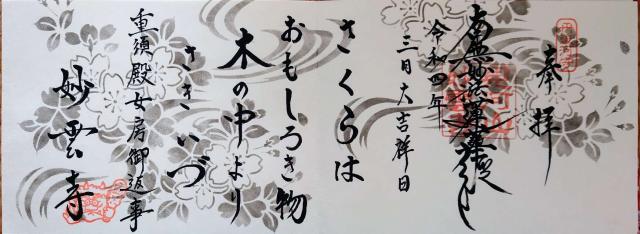 奉拝
南無妙法蓮華経
令和四年
三日大吉祥日
さくらは
おもしろき物
木の中より
さきいづ
重須殿女房御返事
妙雲寺